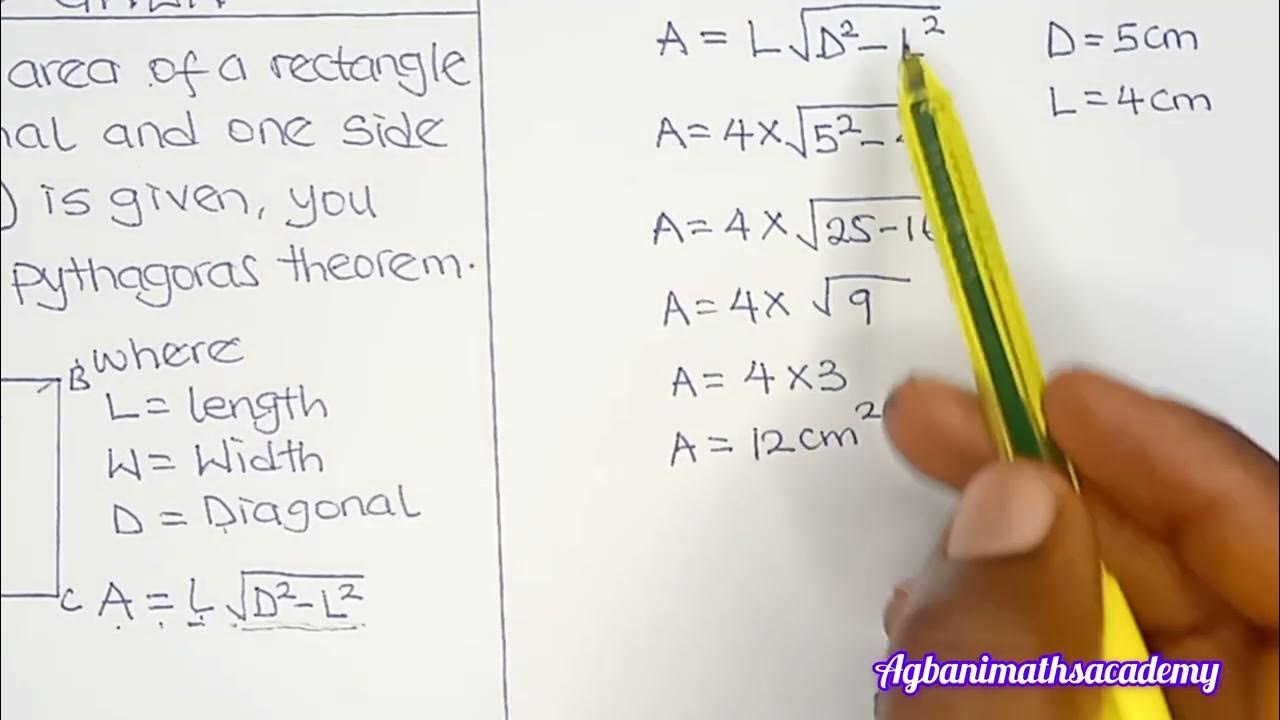 area of a rectangle
and one side
is given, you
pythagoras theorem.
where
B
L = length
W = Width
D = Diagonal
C
A = L√D²-L²
A = L√D²-L²
D = 5cm
L = 4cm
A = 4×√5²-
A = 4×√25-16
A = 4× √9
A = 4×3
A = 12cm²
Agbanimathsacademy